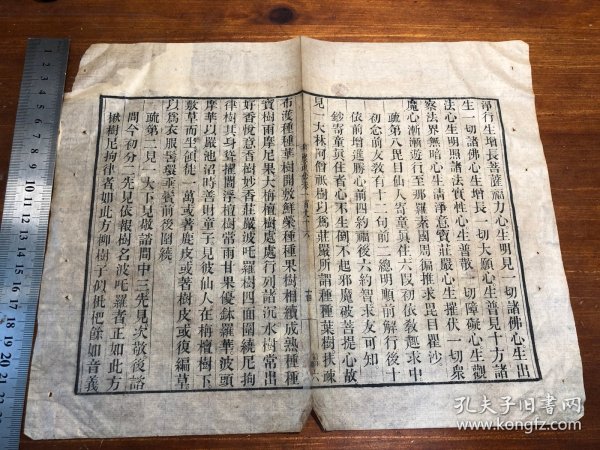 淨行生增長菩薩福力心生明見一切諸佛心生出
生一切諸佛心生增長一切大願心生普見十方諸
法心生明照諸法實性心生普散一切障礙心生觀
察法界無暗心生清淨意寶莊嚴心生摧伏一切眾
魔心漸漸遊行至那羅素國周徧推求毘目瞿沙
疏第八毘目仙人寄童真住六段初依教趣求中
初念前友教有十二句前二總明順前解行後十
依前增進勝心前四約福後六約智求友可知
鈔寄童真住者心不生倒不起邪魔破菩提心故
見一大林阿僧祇樹以為莊嚴所謂種種葉樹扶疎
布濩種種華樹開敷鮮榮種種果樹相續成熟種種
寶樹雨摩尼果大栴檀樹處處行列諸沉水樹常出
好香悅意香樹妙香莊嚴波吒羅樹四面圍繞尼拘
律樹其身聳擢閻浮檀樹常雨甘果優鉢羅華波頭
摩華以嚴池沼時善財童子見彼仙人在栴檀樹下
敷草而坐領徒一萬或著鹿皮或著樹皮或復編草
以為衣服髻環垂鬢前後圍繞
疏第二見一大下見敬諮問中三先見次敬後諮
問今初分二先見依報樹名波吒羅者正如此方
楸樹尼拘律者如此方柳樹子似枇杷餘如音義
孔夫子旧书网
www.kongfz.com